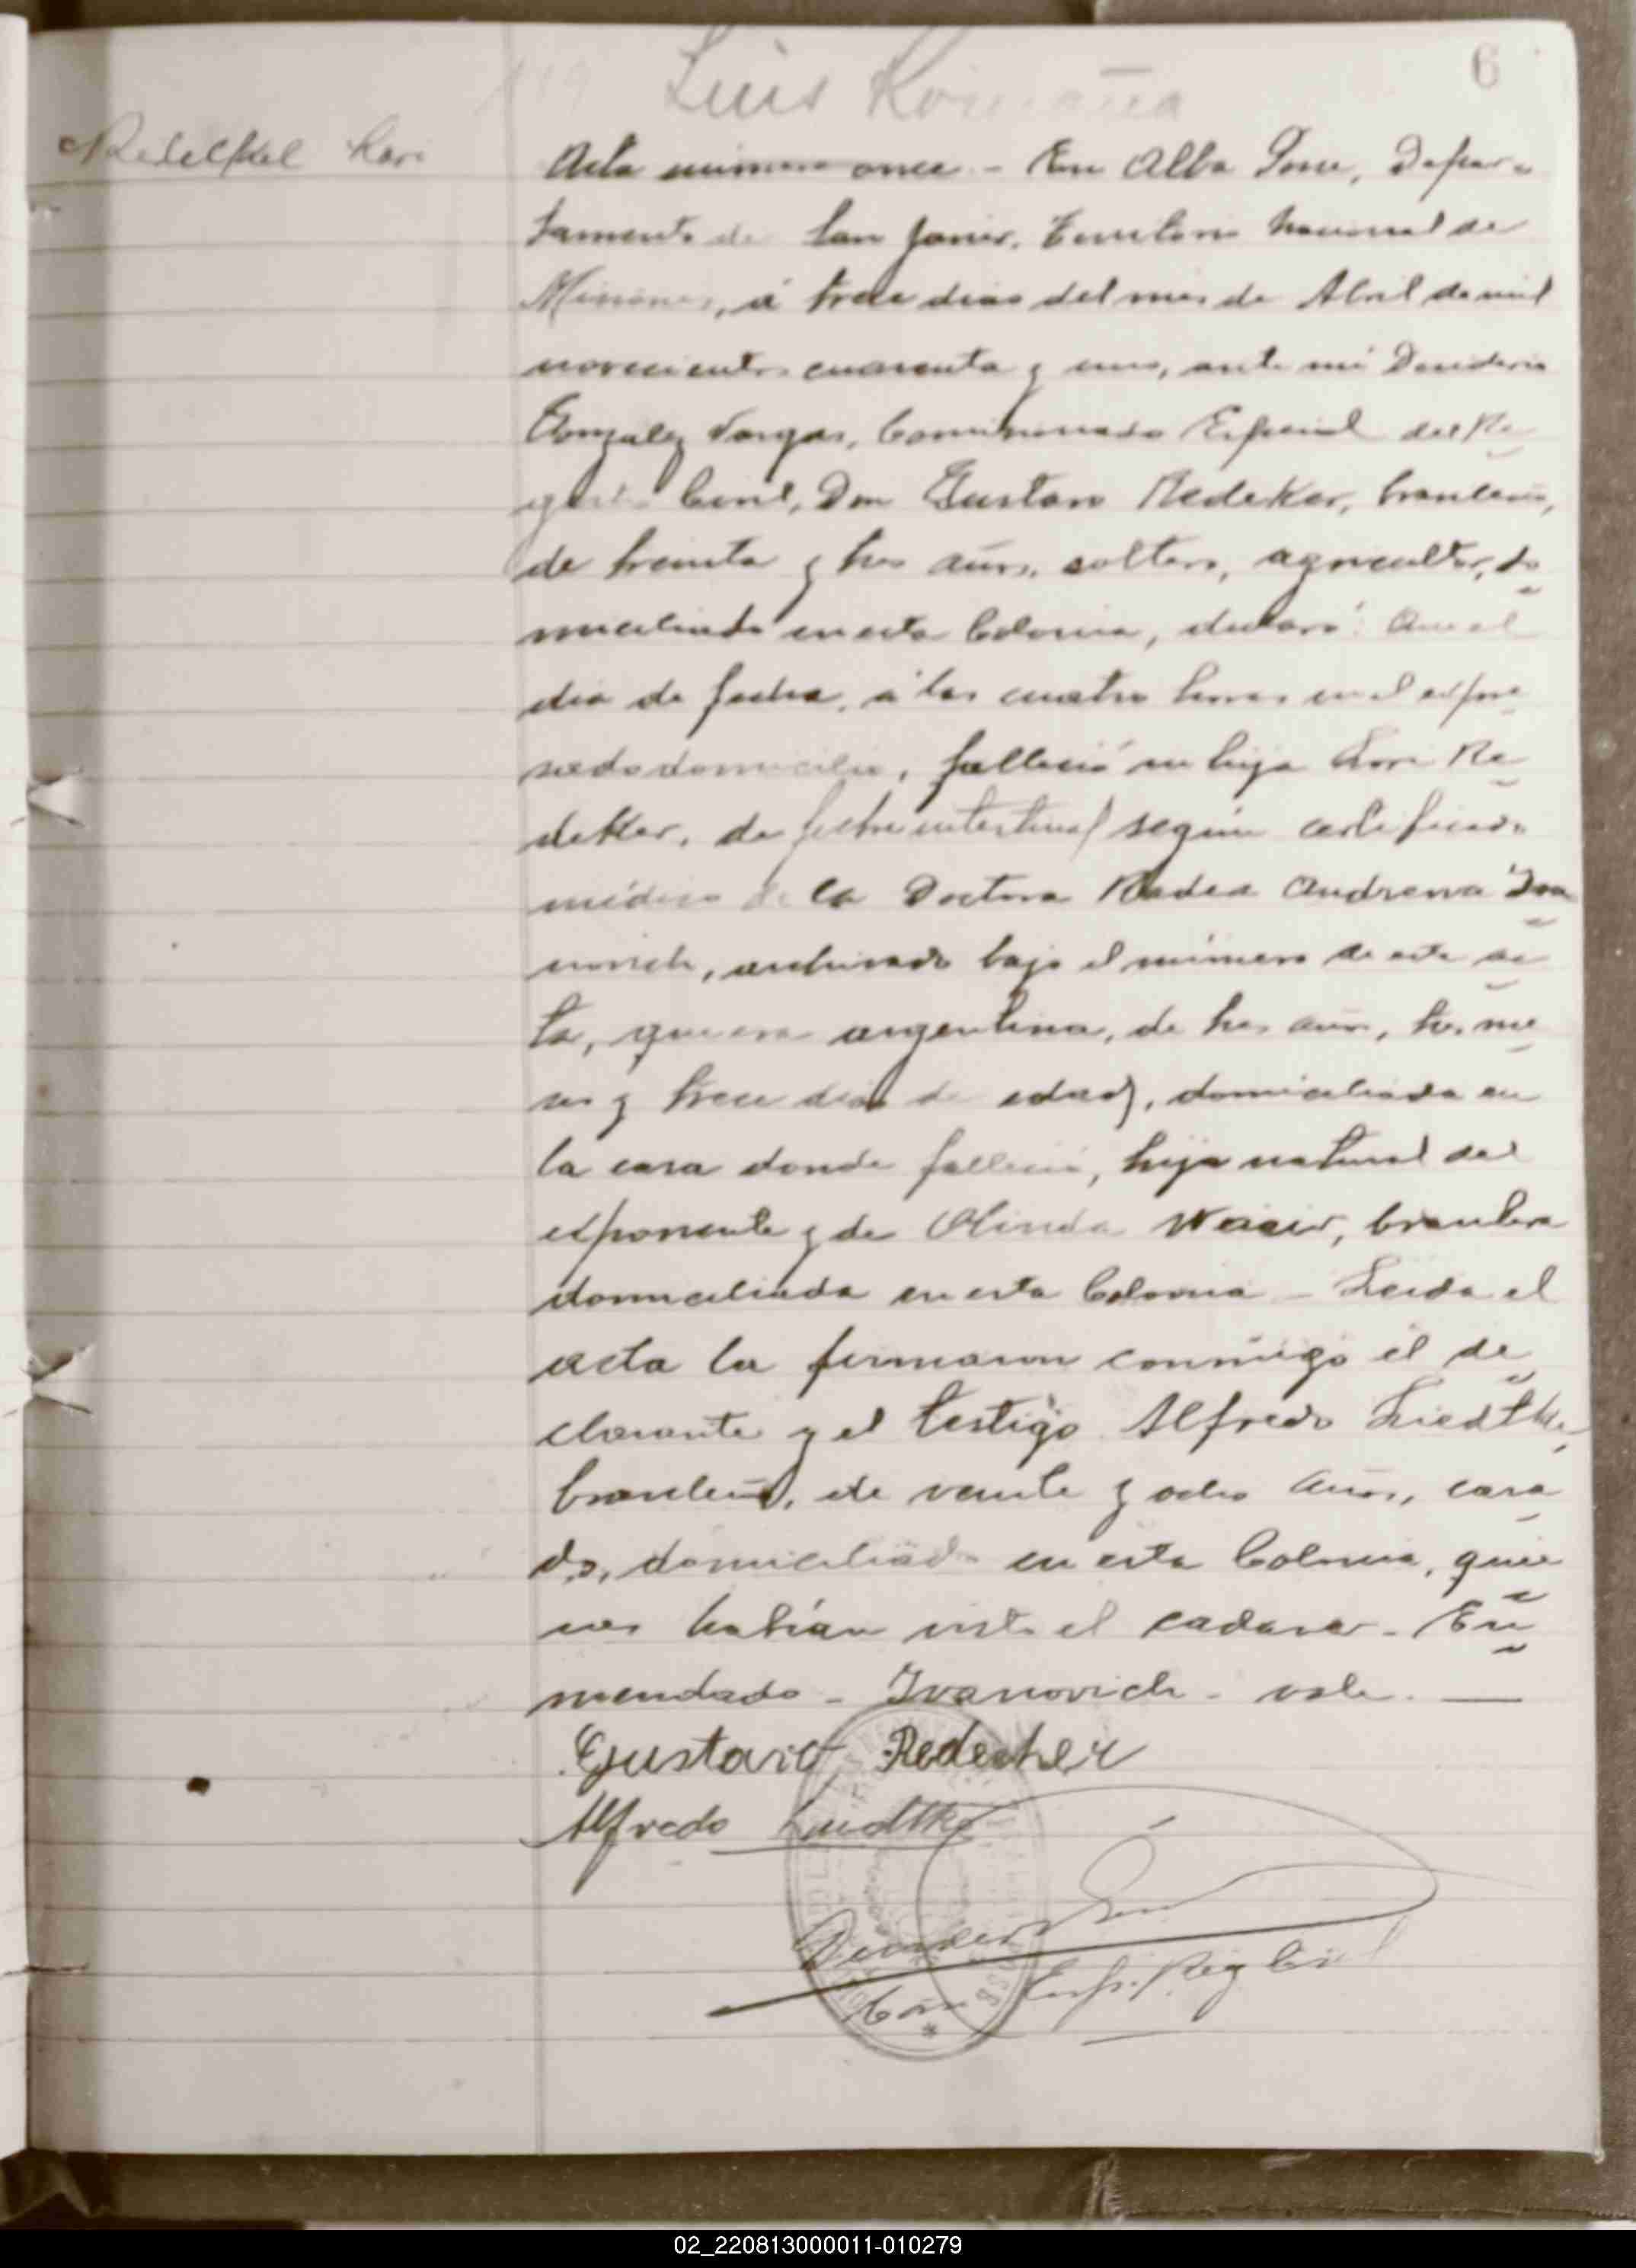 6
Luis
Acta número once - En Alba Posse, Depar-
tamento de San Javier, Territorio Nacional de
Misiones, á trece dias del mes de Abril de mil
novecientos cuarenta y uno, ante mí Desiderio
Gonzalez Vargas, Comisionado Especial del Re-
gistro Civil, Don Gustavo Redeker, brasileño,
de treinta y tres años, soltero, agricultor, do-
miciliado en esta Colonia, declaró: Que el
dia de fecha, á las cuatro horas en el expre-
sado domicilio, falleció su hija Lori Re-
deker, de fiebre intestinal según certificado
médico de la Doctora Nadea Andrewa Iva-
novich, archivado bajo el número de esta ac-
ta, que era argentina, de tres años, tres me-
ses y trece dias de edad, domiciliada en
la casa donde falleció, hija natural del
exponente y de Olinda brasilera
domiciliada en esta Colonia - Leida el
acta la firmaron conmigo el de-
clarante y el testigo Alfredo Liedtke,
brasileño, de veinte y ocho años, casa-
do, domiciliado en esta Colonia, quie-
nes habían visto el cadaver - En-
mendado - Ivanovich - vale. —
Gustavo Redecker
Alfredo Liedtke
Com Esp. Reg Civil
02_220813000011-010279